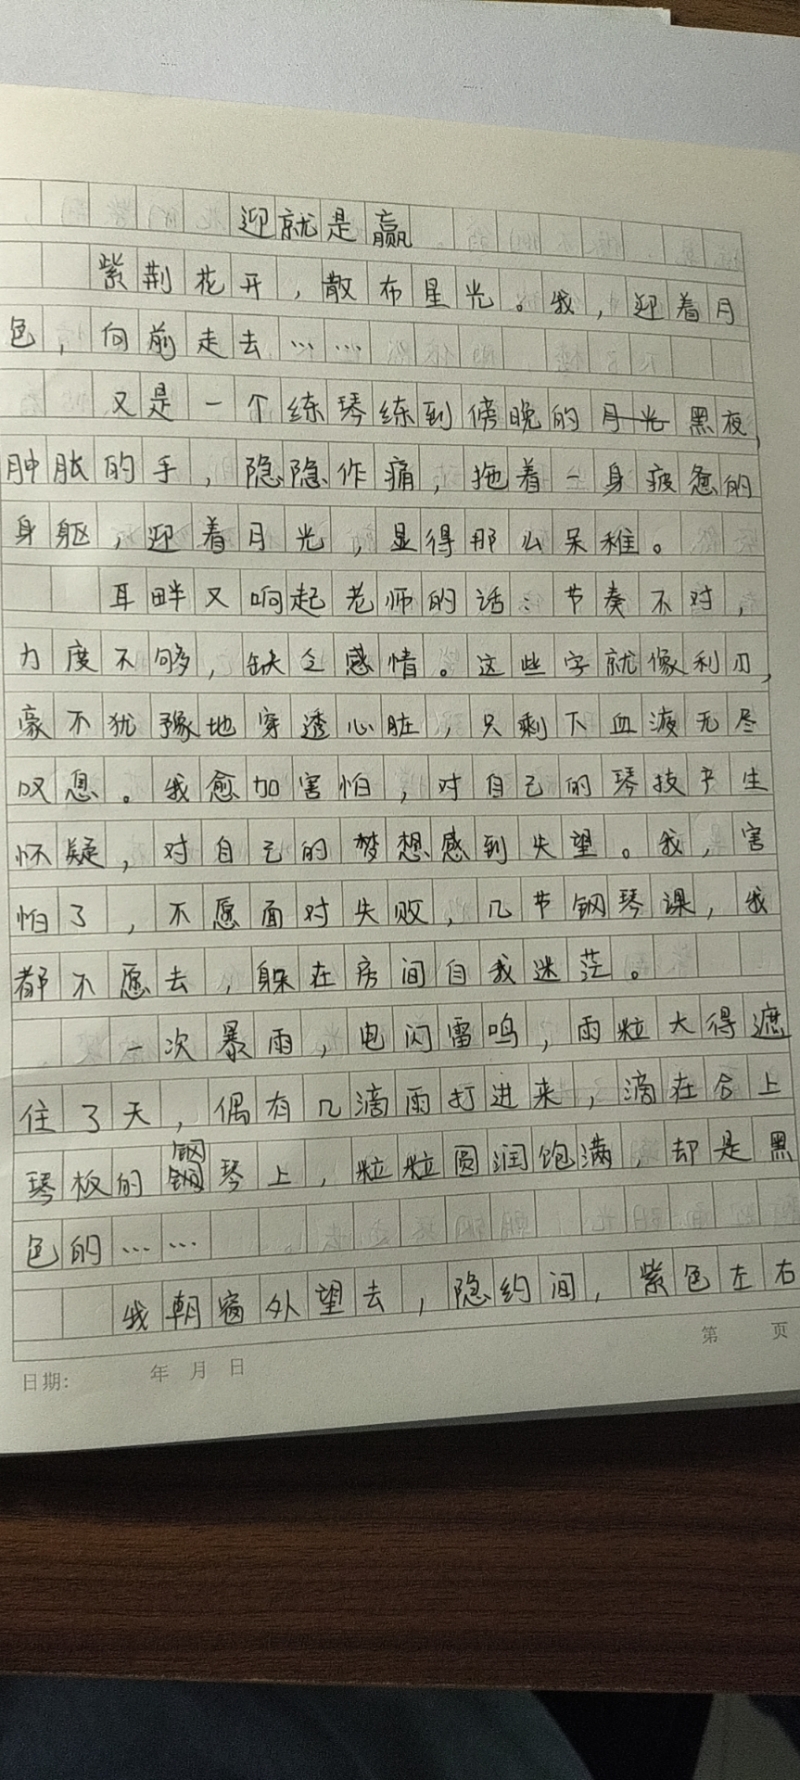 迎就是赢
紫荆花开，散布星光。我，迎着月
色，向前走去……
又是一个练琴练到傍晚的月光黑夜，
肿胀的手，隐隐作痛，拖着一身疲惫的
身躯，迎着月光，显得那么呆稚。
耳畔又响起老师的话：节奏不对，
力度不够，缺乏感情。这些字就像利刃，
豪不犹豫地穿透心脏，只剩下血液无尽
叹息。我愈加害怕，对自己的琴技产生
怀疑，对自己的梦想感到失望。我，害
怕了，不愿面对失败，几节钢琴课，我
都不愿去，躲在房间自我迷茫。
一次暴雨，电闪雷鸣，雨粒大得遮
住了天，偶有几滴雨打进来，滴在合上
琴板的钢琴上，粒粒圆润饱满，却是黑
色的……
我朝窗外望去，隐约间，紫色左右
日期： 年 月 日 第 页